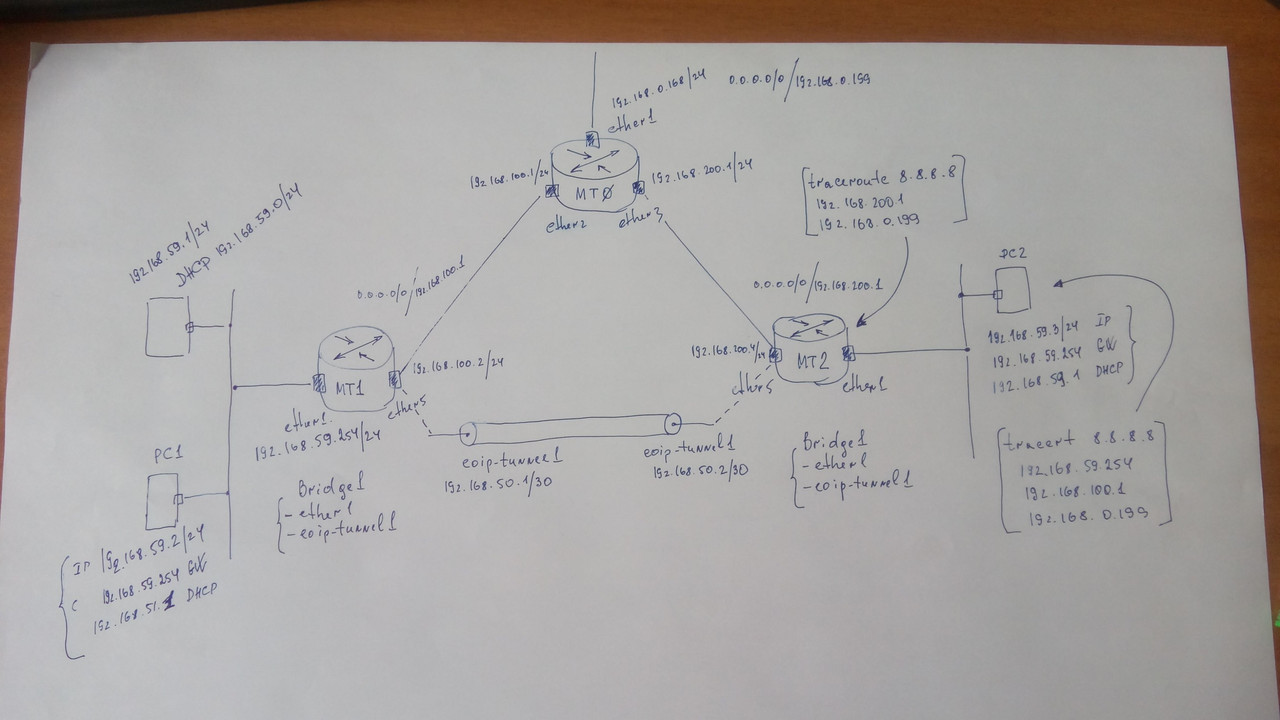 192.168.0.168/24
0.0.0.0/0/192.168.0.199
ether1
192.168.100.1/24
MT0
192.168.200.1/24
ether2
ether3
[traceroute 8.8.8.8
192.168.200.1
192.168.0.199]
192.168.59.1/24
DHCP 192.168.59.0/24
0.0.0.0/0/192.168.100.1
MT1
192.168.100.2/24
ether1
ether5
192.168.59.254/24
Bridge1
- ether1
- eoip-tunnel1
eoip-tunnel1
192.168.50.1/30
eoip-tunnel1
192.168.50.2/30
0.0.0.0/0/192.168.200.1
192.168.200.4/24
MT2
ether5
ether1
Bridge1
- ether1
- eoip-tunnel1
PC2
192.168.59.3/24 IP
192.168.59.254 GW
192.168.59.1 DHCP
[tracert 8.8.8.8
192.168.59.254
192.168.100.1
192.168.0.199]
PC1
IP 192.168.59.2/24
192.168.59.254 GW
192.168.51.1 DHCP